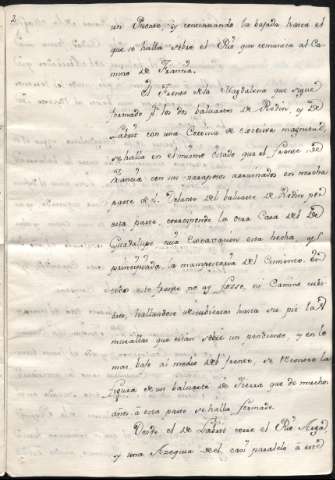 2
un Puente, y continuando la bajada hasta el
que se halla sobre el Rio que comunica al Ca-
mino de Francia.
El Frente de la Magdalena que sigue
formado p.r los dos baluartes de Redin, y de
Labrit con una Cortina de excesiva magnitud
se halla en el mismo estado que el frente de
Francia con sus parapetos arruinados en mucha
parte del baluarte de Redin por
esta parte, corresponde la otra Cara del de
Guadalupe cuia escavacion esta hecha, y
principiada la mamposteria del Cimiento. En
todo este frente no ay fosso, ni Camino cubi-
erto, hallandose descubiertas hasta su pie las
murallas que estan sobre un pendiente, y en lo
mas bajo al medio del frente, se reconoce la
figura de un baluarte de tierra que de muchos
años a esta parte se halla formado.
Desde el de Labrit corre el Rio Arga
y una Azequia de el casi paralelo a este